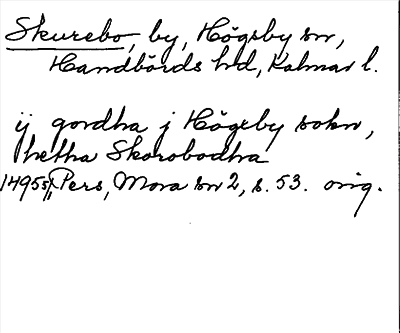 Skurebo, by, Högsby sn,
Handbörds hd, Kalmar l.
ij gordha j Högsby sokn,
hetha Skorobodha
1495 Pers, Mora sn 2, s. 53. orig.